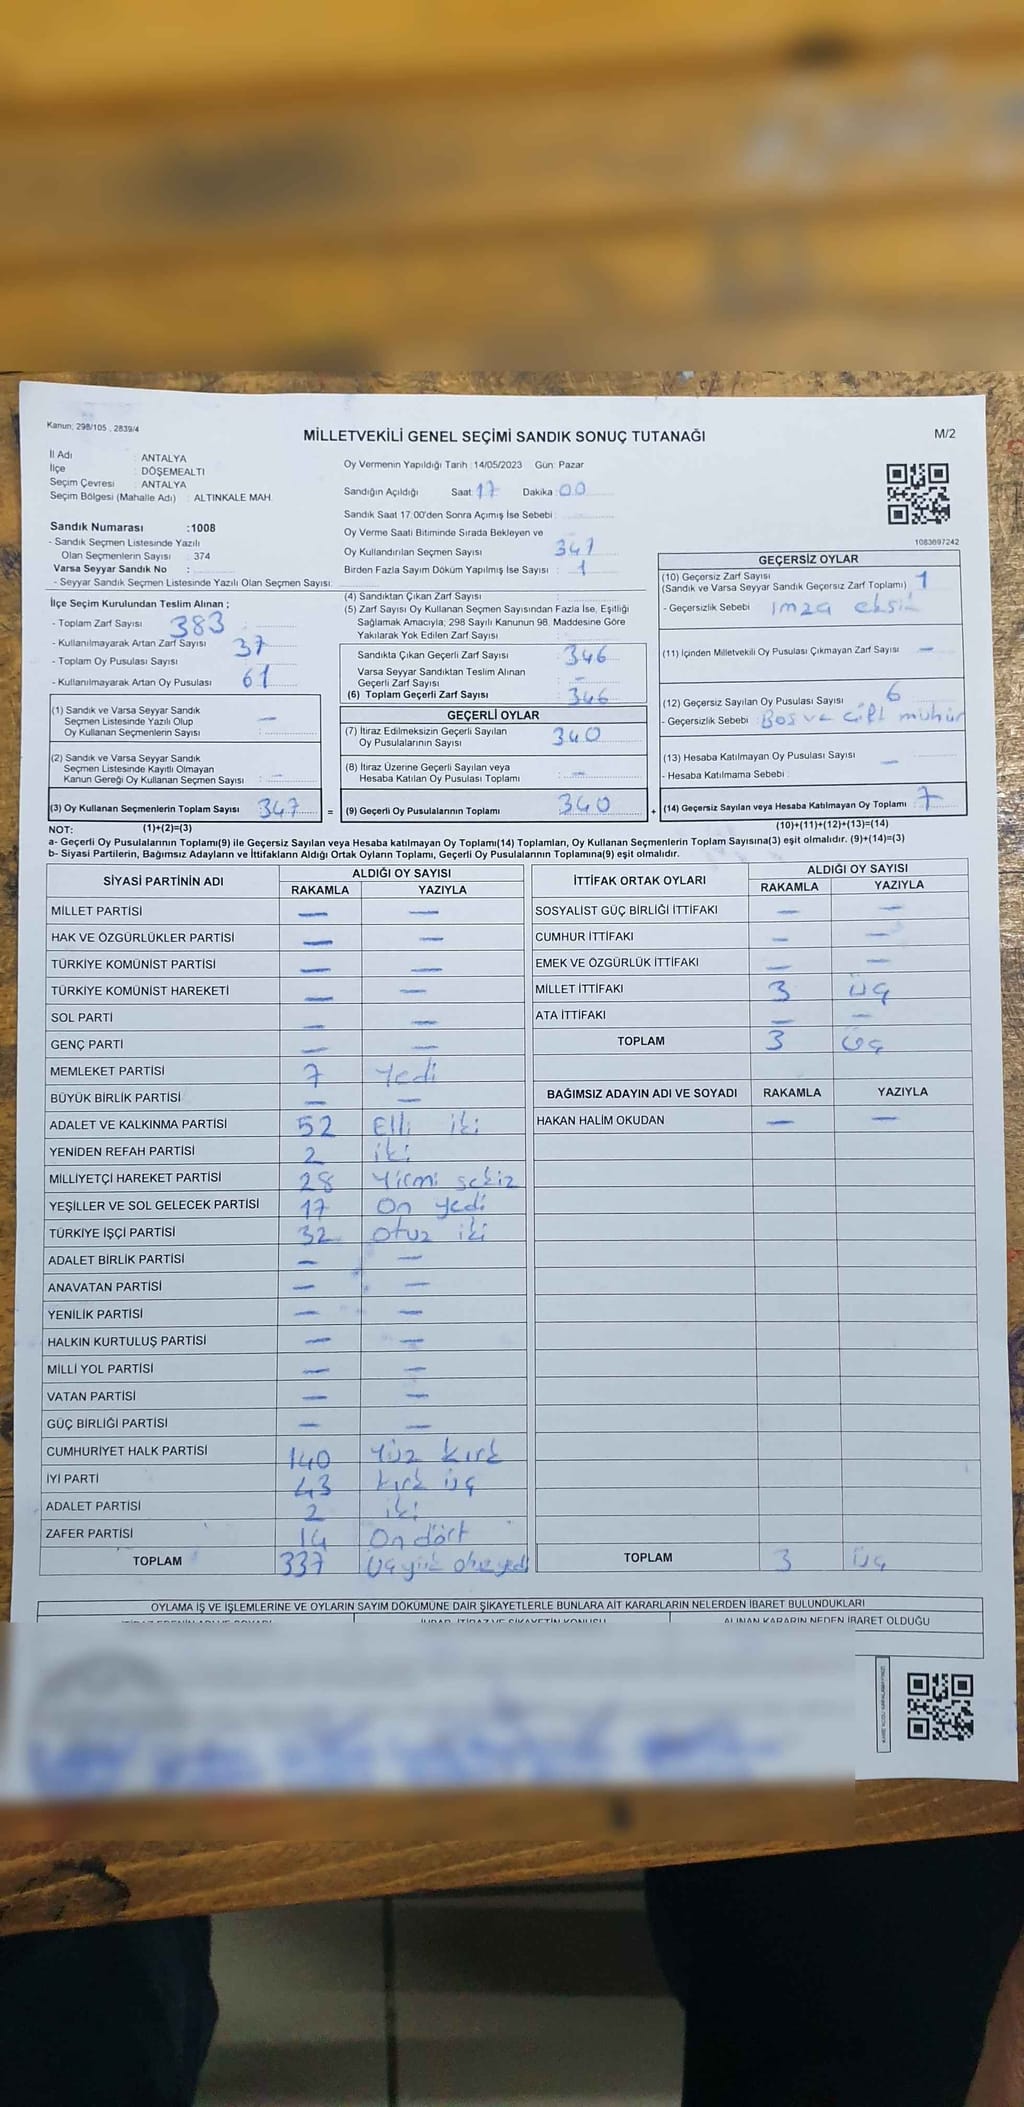 Kanun; 298/105 , 2839/4
MİLLETVEKİLİ GENEL SEÇİMİ SANDIK SONUÇ TUTANAĞI
M/2
İl Adı : ANTALYA
İlçe : DÖŞEMEALTI
Seçim Çevresi : ANTALYA
Seçim Bölgesi (Mahalle Adı) : ALTINKALE MAH.
Sandık Numarası :1008
- Sandık Seçmen Listesinde Yazılı
Olan Seçmenlerin Sayısı : 374
Varsa Seyyar Sandık No :
- Seyyar Sandık Seçmen Listesinde Yazılı Olan Seçmen Sayısı:
Oy Vermenin Yapıldığı Tarih :14/05/2023 Gün: Pazar
Sandığın Açıldığı Saat: 17 Dakika: 00
Sandık Saat 17.00'den Sonra Açımış İse Sebebi :
Oy Verme Saati Bitiminde Sırada Bekleyen ve
Oy Kullandırılan Seçmen Sayısı : 347
Birden Fazla Sayım Döküm Yapılmış İse Sayısı : 1
1083697242
İlçe Seçim Kurulundan Teslim Alınan ;
- Toplam Zarf Sayısı : 383
- Kullanılmayarak Artan Zarf Sayısı : 37
- Toplam Oy Pusulası Sayısı
- Kullanılmayarak Artan Oy Pusulası : 61
(1) Sandık ve Varsa Seyyar Sandık
Seçmen Listesinde Yazılı Olup
Oy Kullanan Seçmenlerin Sayısı : —
(2) Sandık ve Varsa Seyyar Sandık
Seçmen Listesinde Kayıtlı Olmayan
Kanun Gereği Oy Kullanan Seçmen Sayısı : —
(3) Oy Kullanan Seçmenlerin Toplam Sayısı : 347 =
(4) Sandıktan Çıkan Zarf Sayısı :
(5) Zarf Sayısı Oy Kullanan Seçmen Sayısından Fazla İse, Eşitliği
Sağlamak Amacıyla; 298 Sayılı Kanunun 98. Maddesine Göre
Yakılarak Yok Edilen Zarf Sayısı :
Sandıkta Çıkan Geçerli Zarf Sayısı : 346
Varsa Seyyar Sandıktan Teslim Alınan
Geçerli Zarf Sayısı : —
(6) Toplam Geçerli Zarf Sayısı : 346
GEÇERLİ OYLAR
(7) İtiraz Edilmeksizin Geçerli Sayılan
Oy Pusulalarının Sayısı : 340
(8) İtiraz Üzerine Geçerli Sayılan veya
Hesaba Katılan Oy Pusulası Toplamı : —
(9) Geçerli Oy Pusulalarının Toplamı : 340 +
GEÇERSİZ OYLAR
(10) Geçersiz Zarf Sayısı
(Sandık ve Varsa Seyyar Sandık Geçersiz Zarf Toplamı) : 1
- Geçersizlik Sebebi : imza eksik
(11) İçinden Milletvekili Oy Pusulası Çıkmayan Zarf Sayısı : —
(12) Geçersiz Sayılan Oy Pusulası Sayısı : 6
- Geçersizlik Sebebi : Boş ve Çift mühür
(13) Hesaba Katılmayan Oy Pusulası Sayısı : —
- Hesaba Katılmama Sebebi :
(14) Geçersiz Sayılan veya Hesaba Katılmayan Oy Toplamı : 7
NOT: (1)+(2)=(3) (10)+(11)+(12)+(13)=(14)
a- Geçerli Oy Pusulalarının Toplamı(9) ile Geçersiz Sayılan veya Hesaba katılmayan Oy Toplamı(14) Toplamları, Oy Kullanan Seçmenlerin Toplam Sayısına(3) eşit olmalıdır. (9)+(14)=(3)
b- Siyasi Partilerin, Bağımsız Adayların ve İttifakların Aldığı Ortak Oyların Toplamı, Geçerli Oy Pusulalarının Toplamına(9) eşit olmalıdır.
SİYASİ PARTİNİN ADI ALDIĞI OY SAYISI
RAKAMLA YAZIYLA
MİLLET PARTİSİ — —
HAK VE ÖZGÜRLÜKLER PARTİSİ — —
TÜRKİYE KOMÜNİST PARTİSİ — —
TÜRKİYE KOMÜNİST HAREKETİ — —
SOL PARTİ — —
GENÇ PARTİ — —
MEMLEKET PARTİSİ 7 Yedi
BÜYÜK BİRLİK PARTİSİ — —
ADALET VE KALKINMA PARTİSİ 52 Elli iki
YENİDEN REFAH PARTİSİ 2 iki
MİLLİYETÇİ HAREKET PARTİSİ 28 Yirmi sekiz
YEŞİLLER VE SOL GELECEK PARTİSİ 17 On yedi
TÜRKİYE İŞÇİ PARTİSİ 32 otuz iki
ADALET BİRLİK PARTİSİ — —
ANAVATAN PARTİSİ — —
YENİLİK PARTİSİ — —
HALKIN KURTULUŞ PARTİSİ — —
MİLLİ YOL PARTİSİ — —
VATAN PARTİSİ — —
GÜÇ BİRLİĞİ PARTİSİ — —
CUMHURİYET HALK PARTİSİ 140 Yüz kırk
İYİ PARTİ 43 kırk üç
ADALET PARTİSİ 2 iki
ZAFER PARTİSİ 14 On dört
TOPLAM 337 Üçyüz otuzyedi
İTTİFAK ORTAK OYLARI ALDIĞI OY SAYISI
RAKAMLA YAZIYLA
SOSYALİST GÜÇ BİRLİĞİ İTTİFAKI — —
CUMHUR İTTİFAKI — —
EMEK VE ÖZGÜRLÜK İTTİFAKI — —
MİLLET İTTİFAKI 3 üç
ATA İTTİFAKI — —
TOPLAM 3 üç
BAĞIMSIZ ADAYIN ADI VE SOYADI RAKAMLA YAZIYLA
HAKAN HALİM OKUDAN — —
TOPLAM 3 üç
OYLAMA İŞ VE İŞLEMLERİNE VE OYLARIN SAYIM DÖKÜMÜNE DAİR ŞİKAYETLERLE BUNLARA AİT KARARLARIN NELERDEN İBARET BULUNDUKLARI
ALINAN KARARIN NEDEN İBARET OLDUĞU